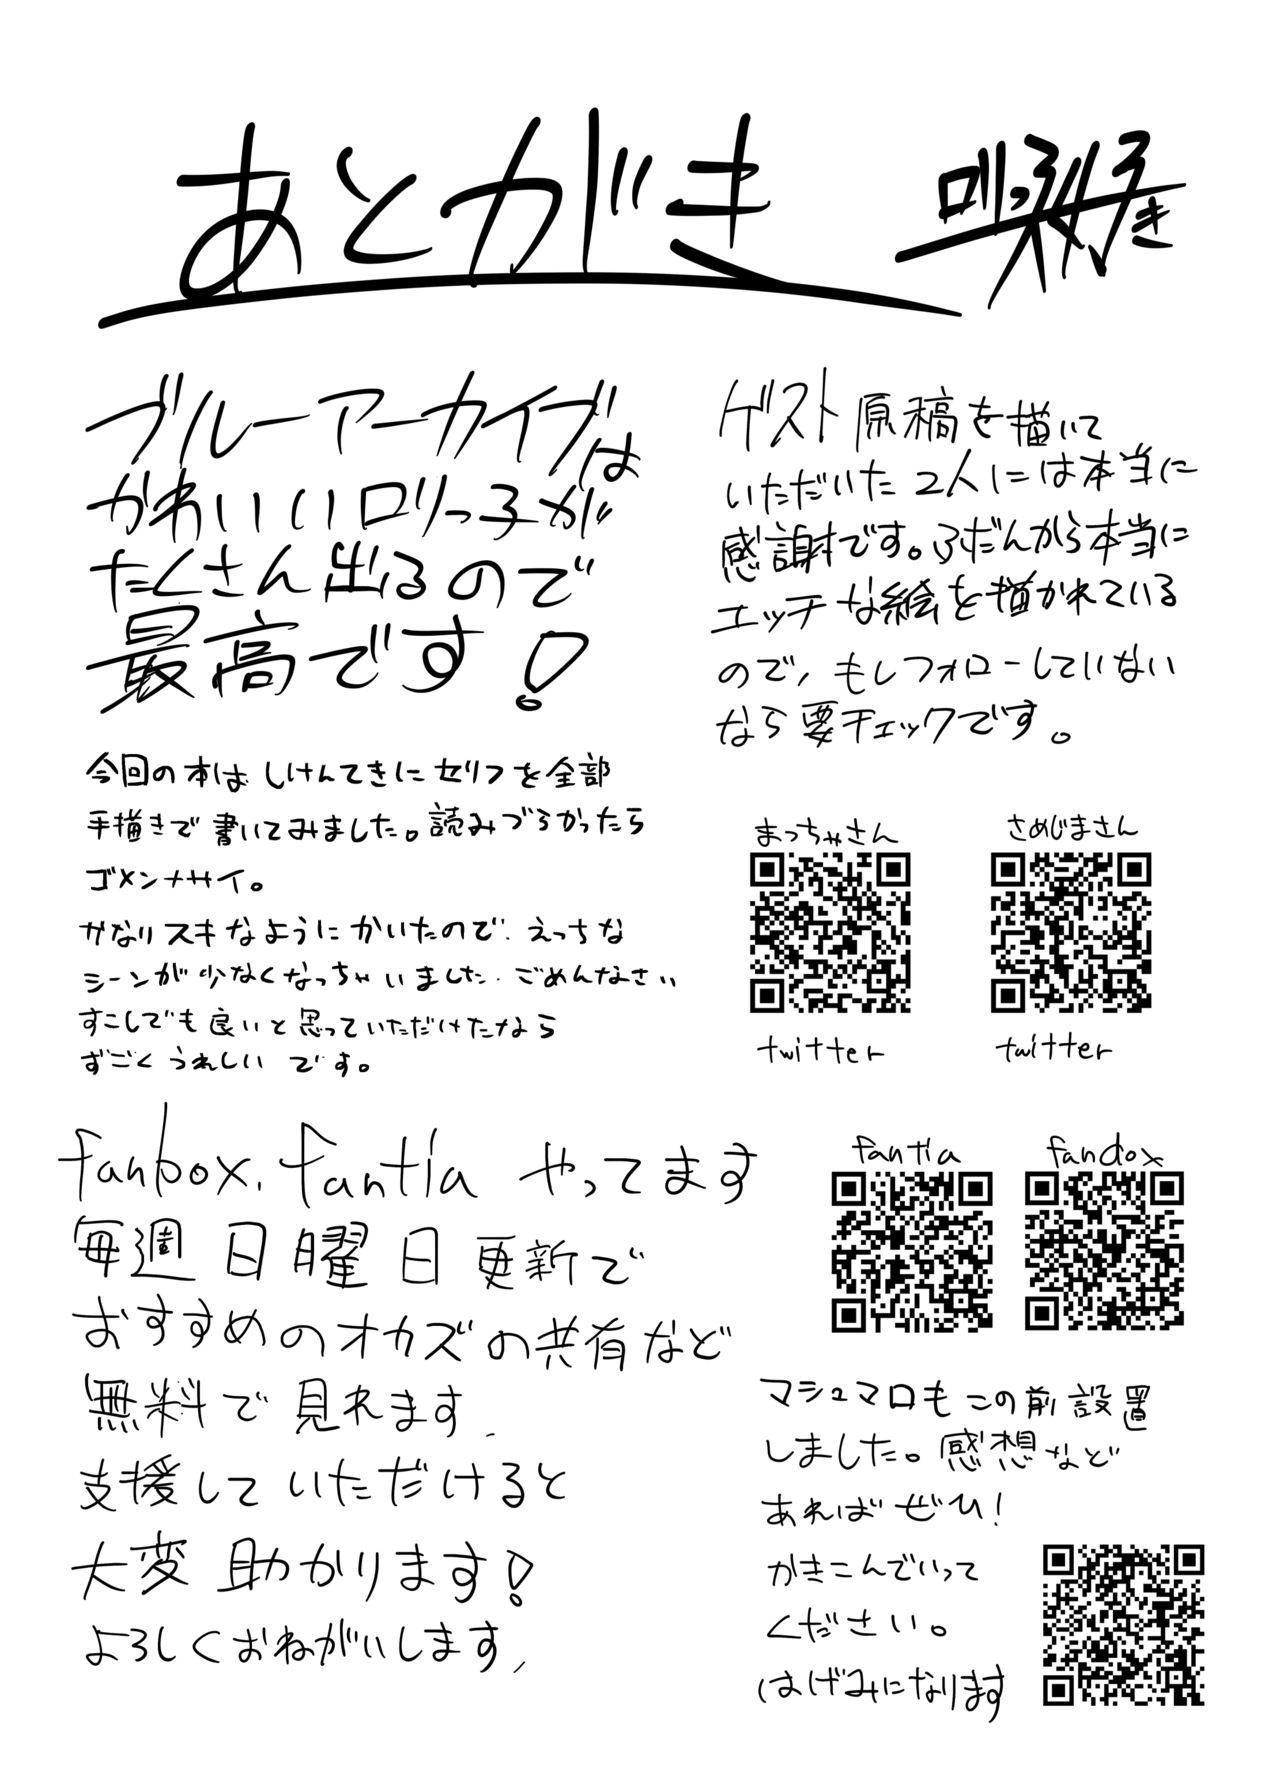 あとがき
ブルーアーカイブは
かわいいロリっ子が
たくさん出るので
最高です！
今回の本は しけんてきに セリフを全部
手描きで 書いてみました。読みづらかったら
ゴメンナサイ。
かなりスキなようにかいたので、えっちな
シーンが少なくなっちゃいました。ごめんなさい
すこしでも良いと思っていただけたなら
すごくうれしいです。
ゲスト原稿を描いて
いただいた2人には本当に
感謝です。ふだんから本当に
エッチな絵を描かれている
ので、もしフォローしていない
なら要チェックです。
まっちゃさん
さめじまさん
twitter
twitter
fanbox、fantia やってます
毎週日曜日更新で
おすすめのオカズの共有など
無料で見れます、
支援していただけると
大変助かります！
よろしくおねがいします、
fantia
fanbox
マシュマロもこの前設置
しました。感想など
あればぜひ！
かきこんでいって
ください。
はげみになります